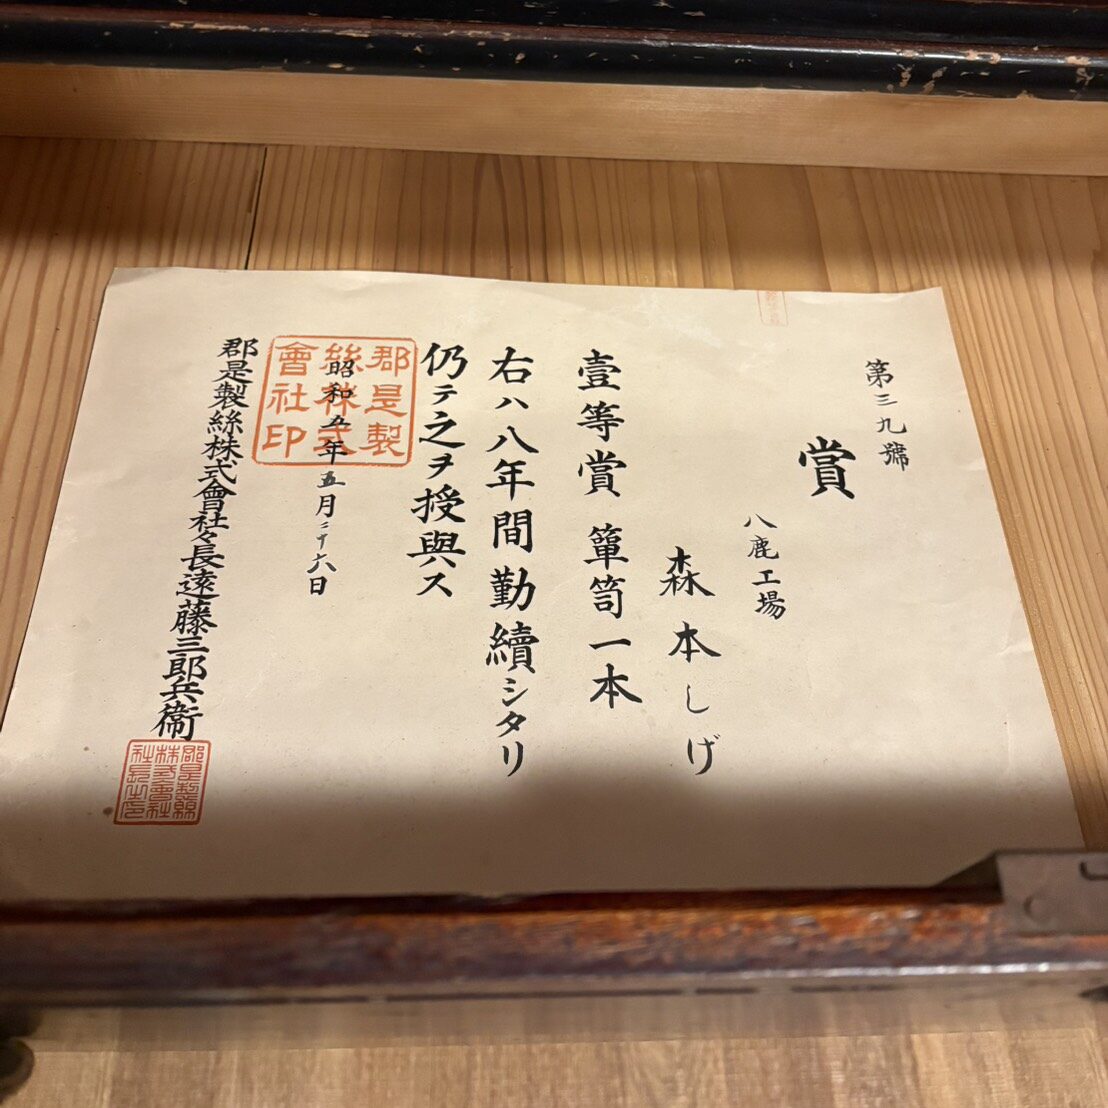 第三九號
賞
八鹿工場
森本しげ
壹等賞 簞笥一本
右ハ八年間勤續シタリ
仍テ之ヲ授與ス
昭和五年五月二十六日
郡是製絲株式會社印
郡是製絲株式會社々長遠藤三郎兵衞
郡是製絲株式會社社長之印